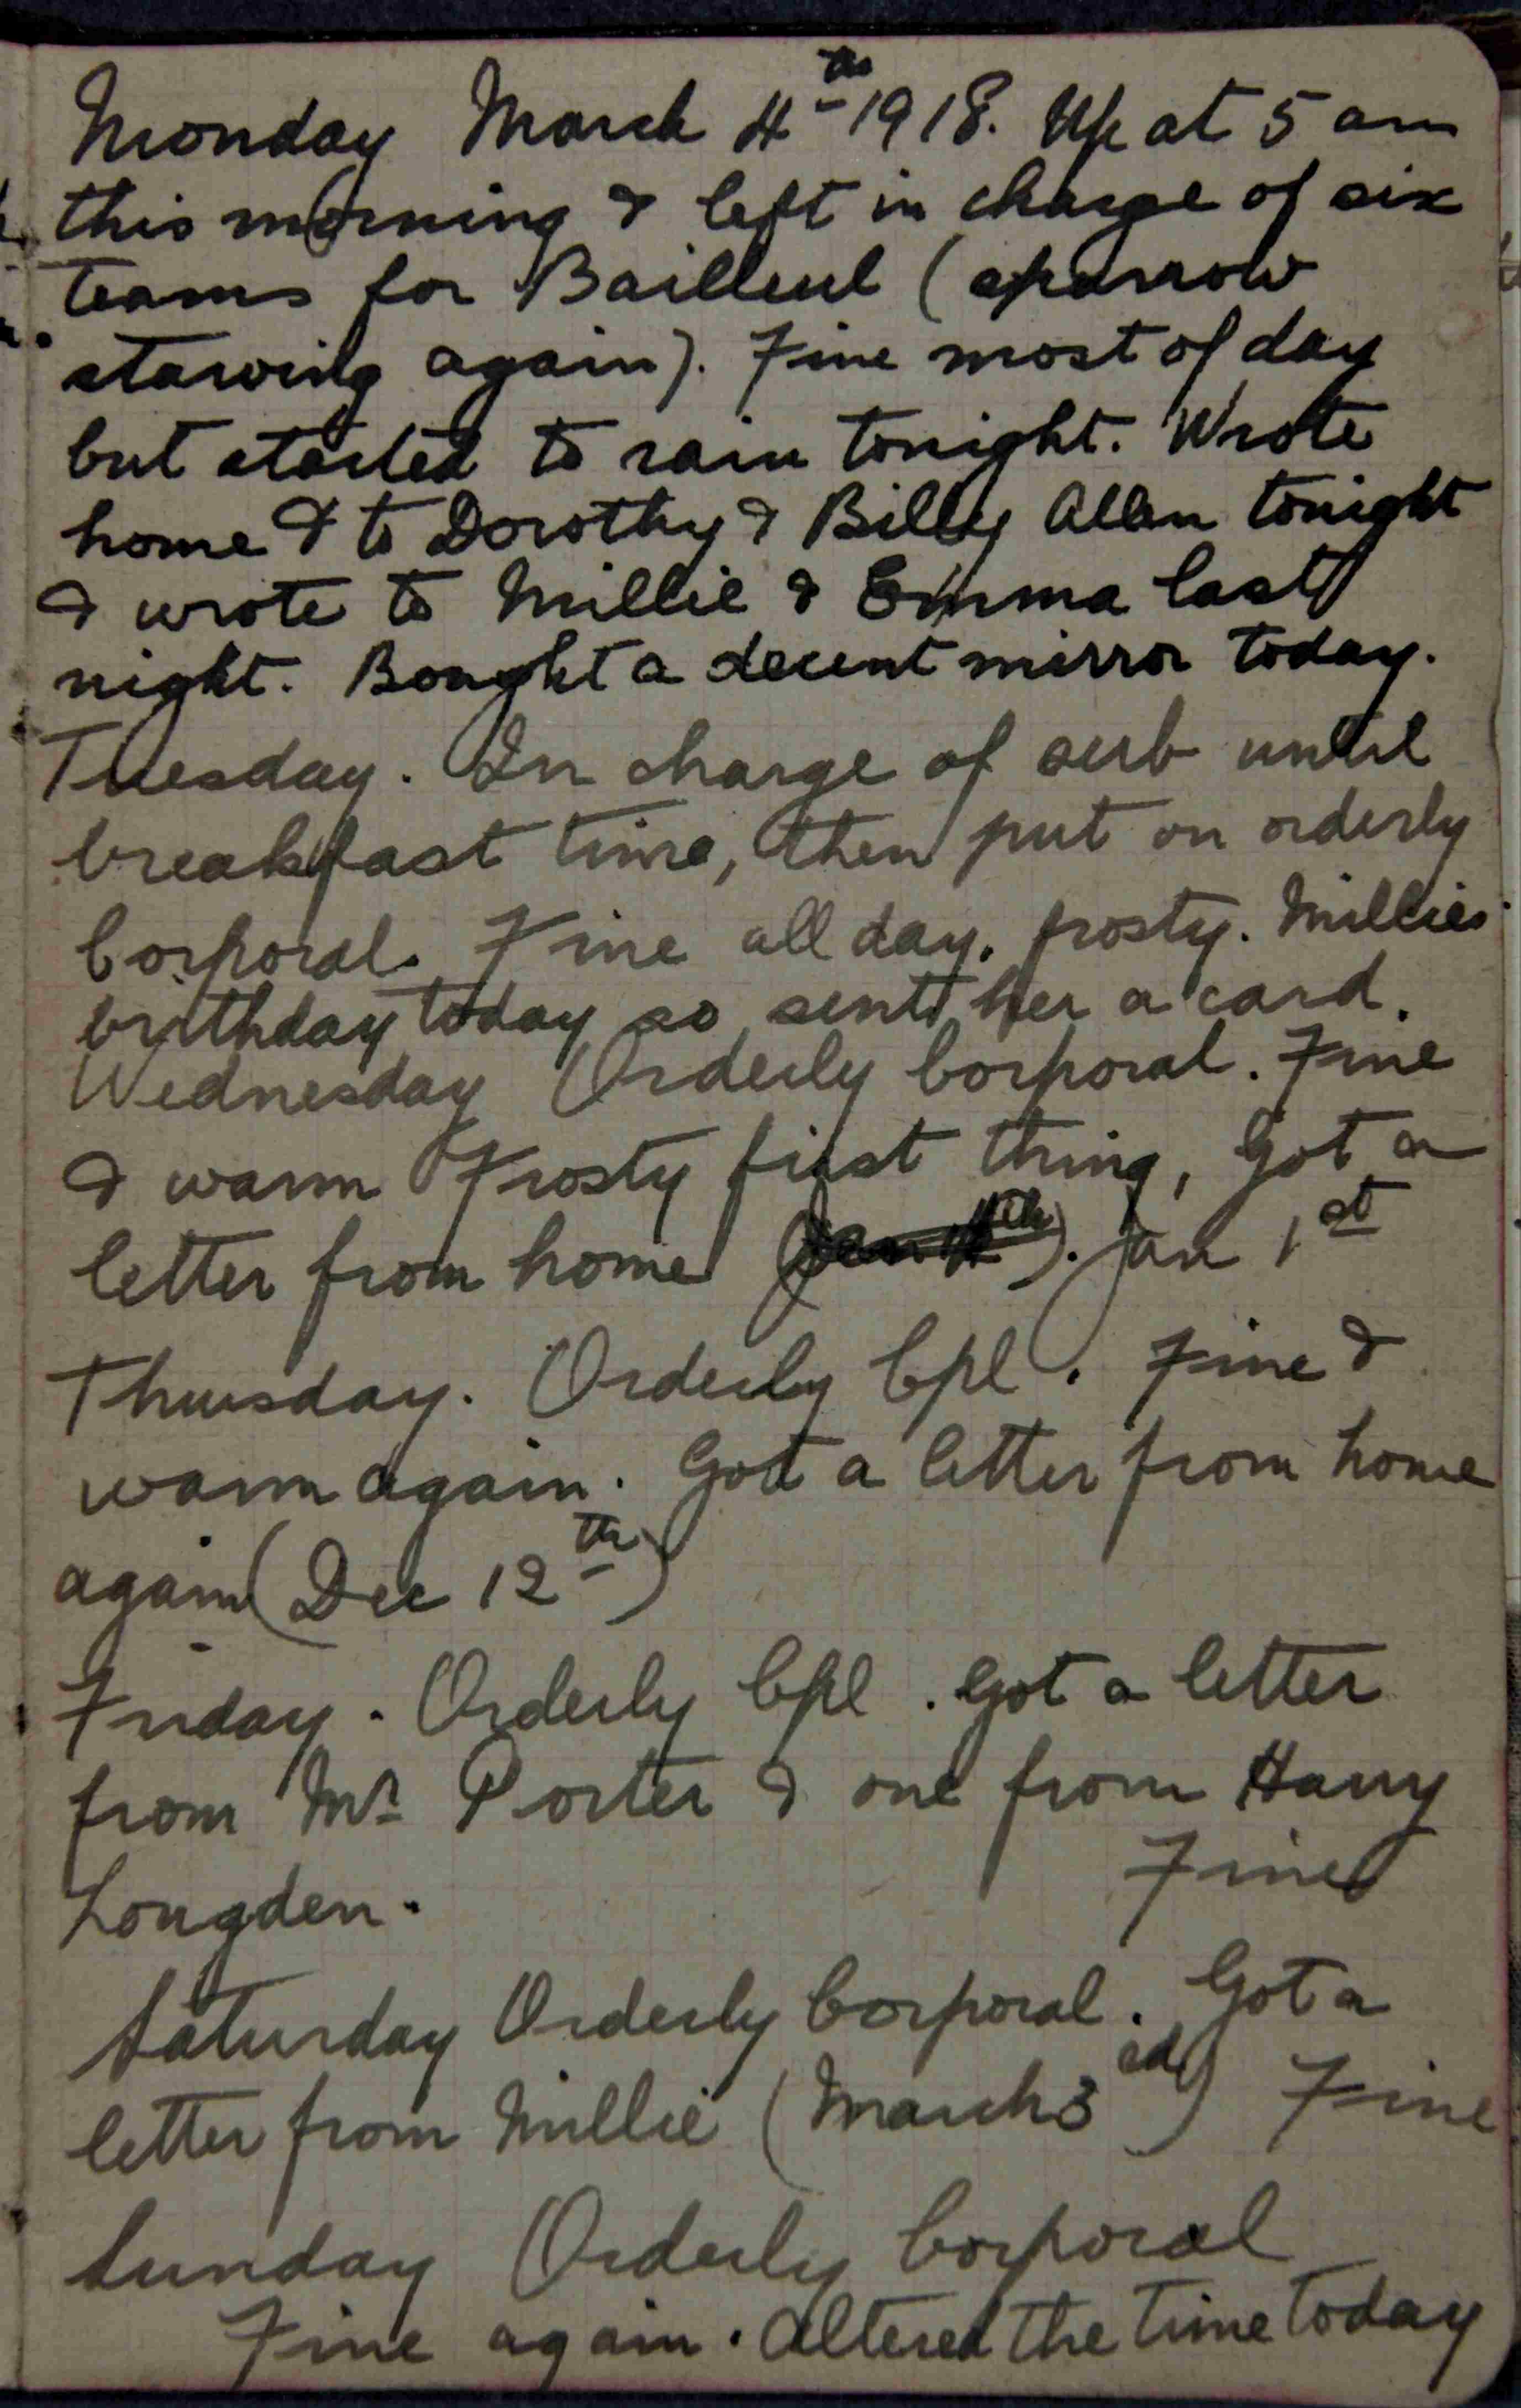 Monday March 4th 1918. Up at 5 am
this morning & left in charge of six
teams for Bailleul (sparrow
starving again). Fine most of day
but started to rain tonight. Wrote
home & to Dorothy & Billy Allan tonight
& wrote to Millie & Emma last
night. Bought a decent mirror today.
Tuesday. In charge of sub until
breakfast time, then put on orderly
Corporal. Fine all day. frosty. Millies
birthday today so sent her a card.
Wednesday Orderly Corporal. Fine
& warm Frosty first thing, Got a
letter from home. Jan 1st
Thursday. Orderly Cpl. Fine &
warm again. Got a letter from home
again (Dec 12th)
Friday. Orderly Cpl. Got a letter
from Mr Porter & one from Harry
Longden. Fine
Saturday Orderly Corporal. Got a
letter from Millie (March 3rd) Fine
Sunday Orderly Corporal
Fine again. Altered the time today